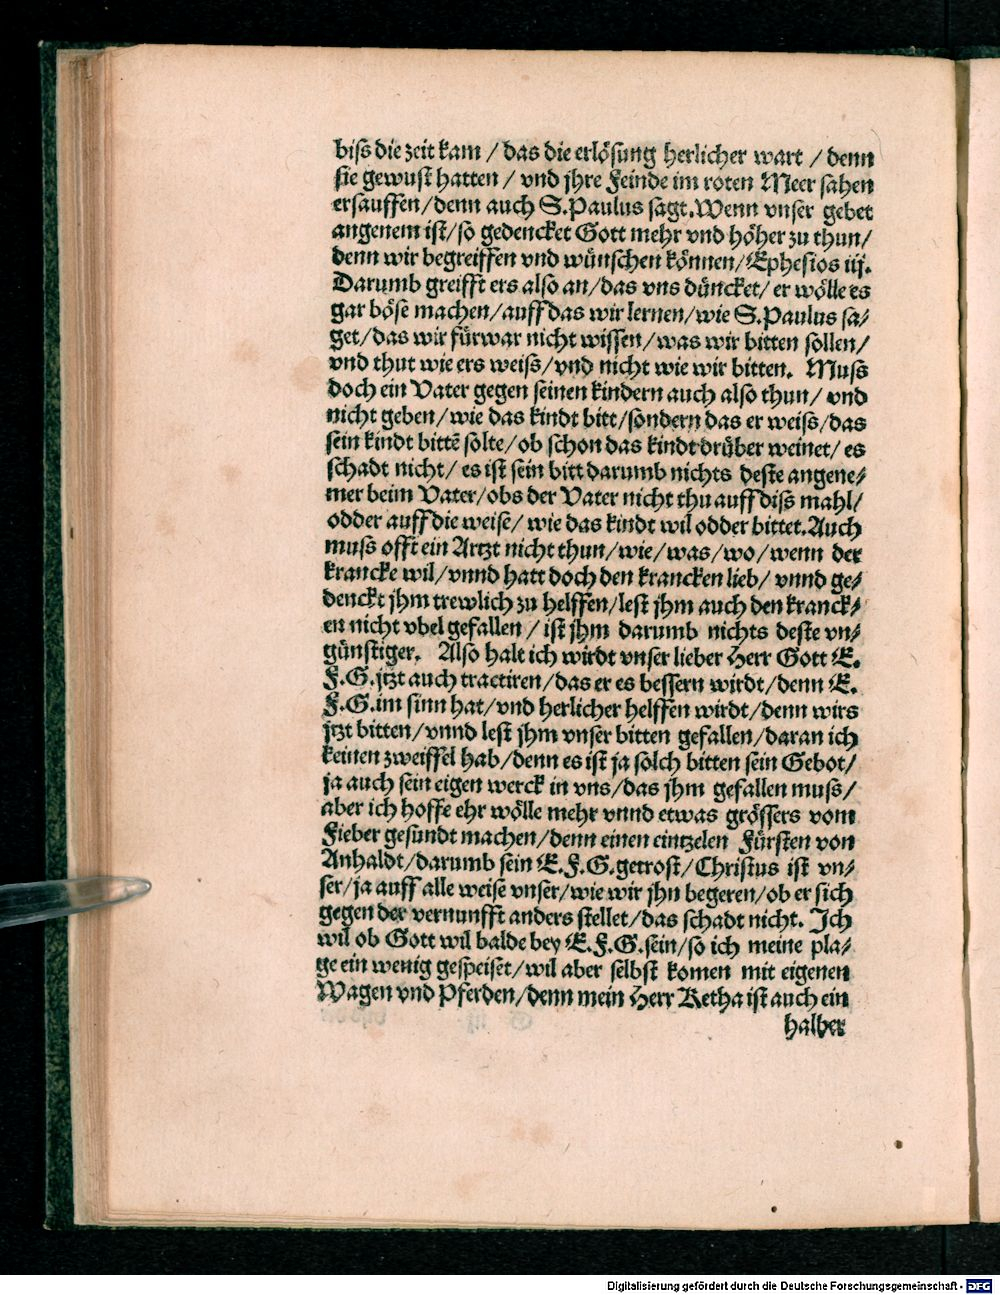 biſs die zeit kam / das die erlöſung herlicher wart / denn
ſie gewuſt hatten / vnd jhre Feinde im roten Meer ſahen
erſauffen/denn auch S.Paulus ſagt.Wenn vnſer gebet
angenem iſt/ſo gedencket Gott mehr vnd höher zu thun/
denn wir begreiffen vnd wünſchen können/Epheſios iij.
Darumb greifft ers alſo an/das vns düncket/ er wölle es
gar böſe machen/auff das wir lernen/wie S.Paulus ſa⸗
get/das wir fürwar nicht wiſſen/was wir bitten ſollen/
vnd thut wie ers weiſs/vnd nicht wie wir bitten. Muſs
doch ein Vater gegen ſeinen kindern auch alſo thun/ vnd
nicht geben/wie das kindt bitt/ſondern das er weiſs/das
ſein kindt bittē ſolte/ob ſchon das kindt drüber weinet/es
ſchadt nicht/ es iſt ſein bitt darumb nichts deſte angene⸗
mer beim Vater/obs der Vater nicht thu auff diſs mahl/
odder auff die weiſe/ wie das kindt wil odder bittet.Auch
muſs offt ein Artzt nicht thun/wie/was/wo/wenn der
krancke wil/vnnd hatt doch den krancken lieb/ vnnd ge⸗
denckt jhm trewlich zu helffen/leſt jhm auch den kranck⸗
en nicht vbel gefallen / iſt jhm darumb nichts deſte vn⸗
günſtiger. Alſo halt ich wirdt vnſer lieber Herr Gott E.
F.G.jtzt auch tractiren/das er es beſſern wirdt/denn E.
F.G.im ſinn hat/vnd herlicher helffen wirdt/denn wirs
jtzt bitten/vnnd leſt jhm vnſer bitten gefallen/daran ich
keinen zweiffel hab/denn es iſt ja ſolch bitten ſein Gebot/
ja auch ſein eigen werck in vns/das jhm gefallen muſs/
aber ich hoffe ehr wölle mehr vnnd etwas gröſſers vom
Fieber geſundt machen/denn einen eintzelen Fürſten von
Anhaldt/darumb ſein E.F.G.getroſt/Chriſtus iſt vn⸗
ſer/ja auff alle weiſe vnſer/wie wir jhn begeren/ob er ſich
gegen der vernunfft anders ſtellet/das ſchadt nicht. Ich
wil ob Gott wil balde bey E.F.G.ſein/ſo ich meine pla⸗
ge ein wenig geſpeiſet/wil aber ſelbſt komen mit eigenen
Wagen vnd Pferden/denn mein Herr Ketha iſt auch ein
halber
Digitalisierung gefördert durch die Deutsche Forschungsgemeinschaft - DFG